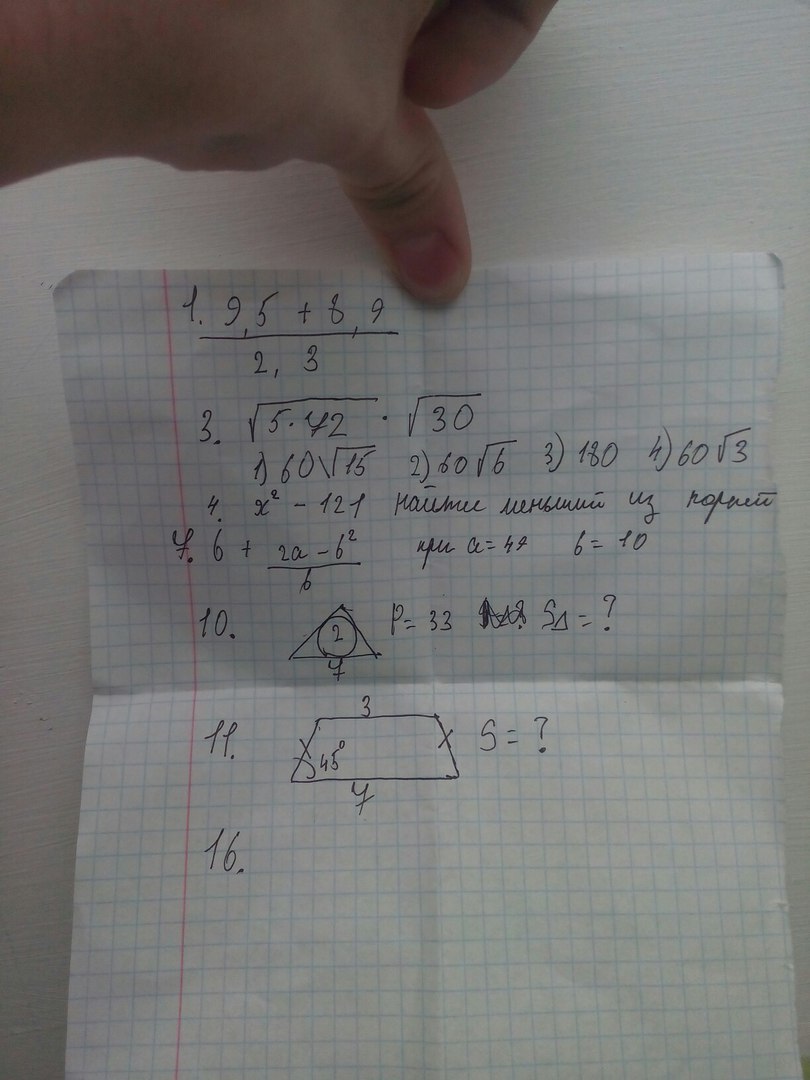 1. 9,5 + 8,9
2,3
3. √5·72 · √30
1) 60√15 2) 60√6 3) 180 4) 60√3
4. x² - 121 найти меньший из корней
7. b + 2a - b² при a = 47 b = 10
b
10. 2 P = 33 S△ = ?
7
3
11. 45° S = ?
7
16.